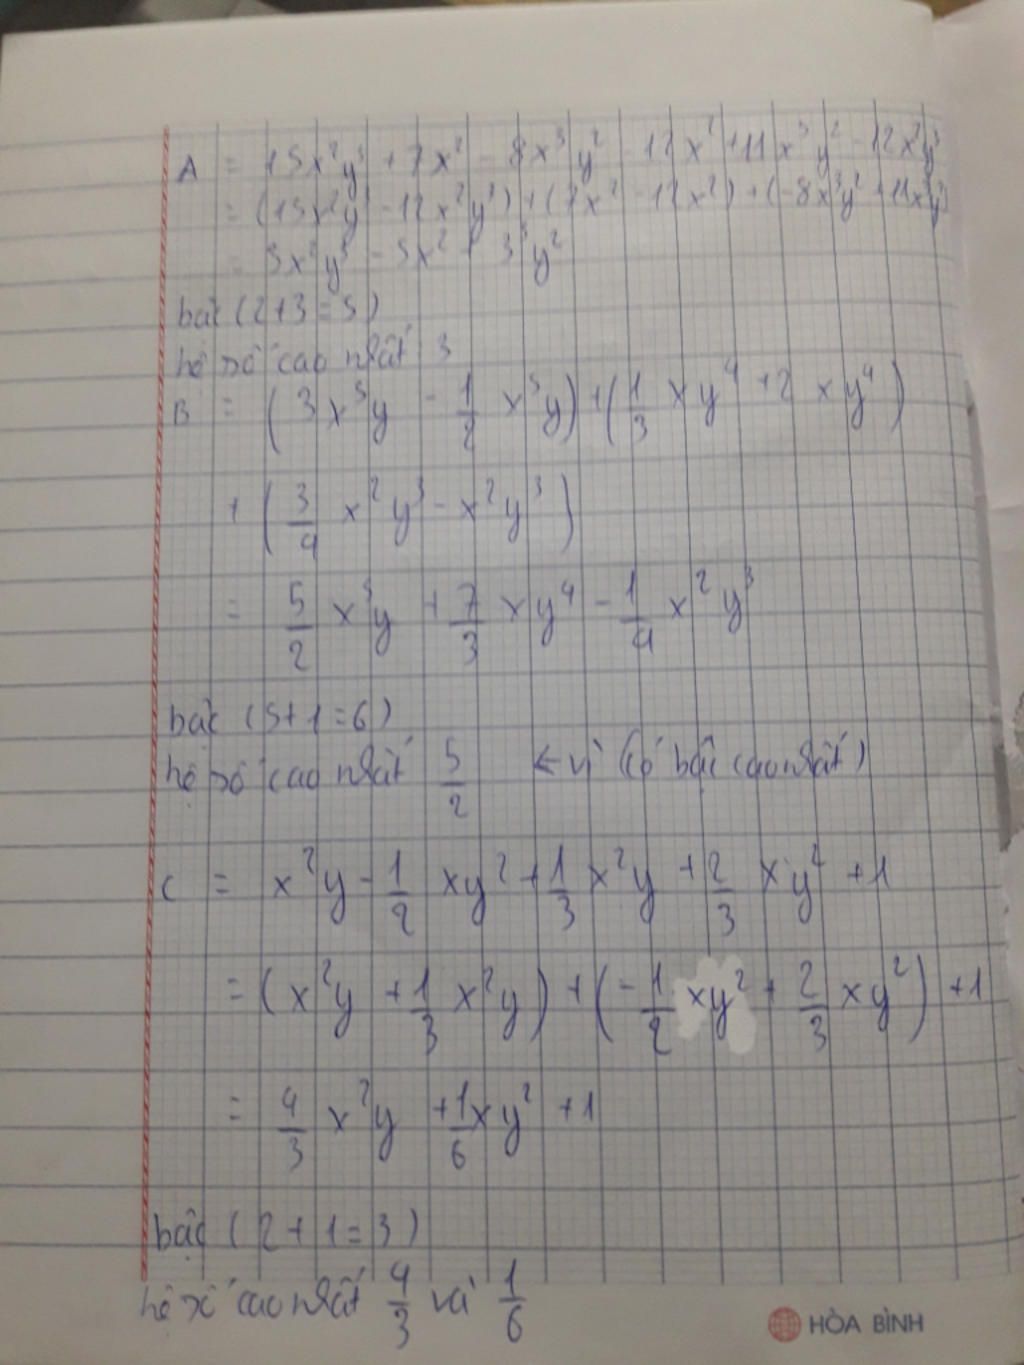 A = 15x²y³ + 7x² - 8x³y² - 12x² + 11x³y² - 12x²y³
= (15x²y³ - 12x²y³) + (7x² - 12x²) + (-8x³y² + 11x³y²)
= 3x²y³ - 5x² + 3³y²
bậc (2+3=5)
hệ số cao nhất 3
B = (3x⁵y - 1/2 x⁵y) + (1/3 xy⁴ + 2 xy⁴)
+ (3/4 x²y³ - x²y³)
= 5/2 x⁵y + 7/3 xy⁴ - 1/4 x²y³
bậc (5+1=6)
hệ số cao nhất 5/2 ← vì (có bậc cao nhất)
C = x²y - 1/2 xy² + 1/3 x²y + 2/3 xy² + 1
= (x²y + 1/3 x²y) + (-1/2 xy² + 2/3 xy²) + 1
= 4/3 x²y + 1/6 xy² + 1
bậc (2+1=3)
hệ số cao nhất 4/3 và 1/6
HÒA BÌNH